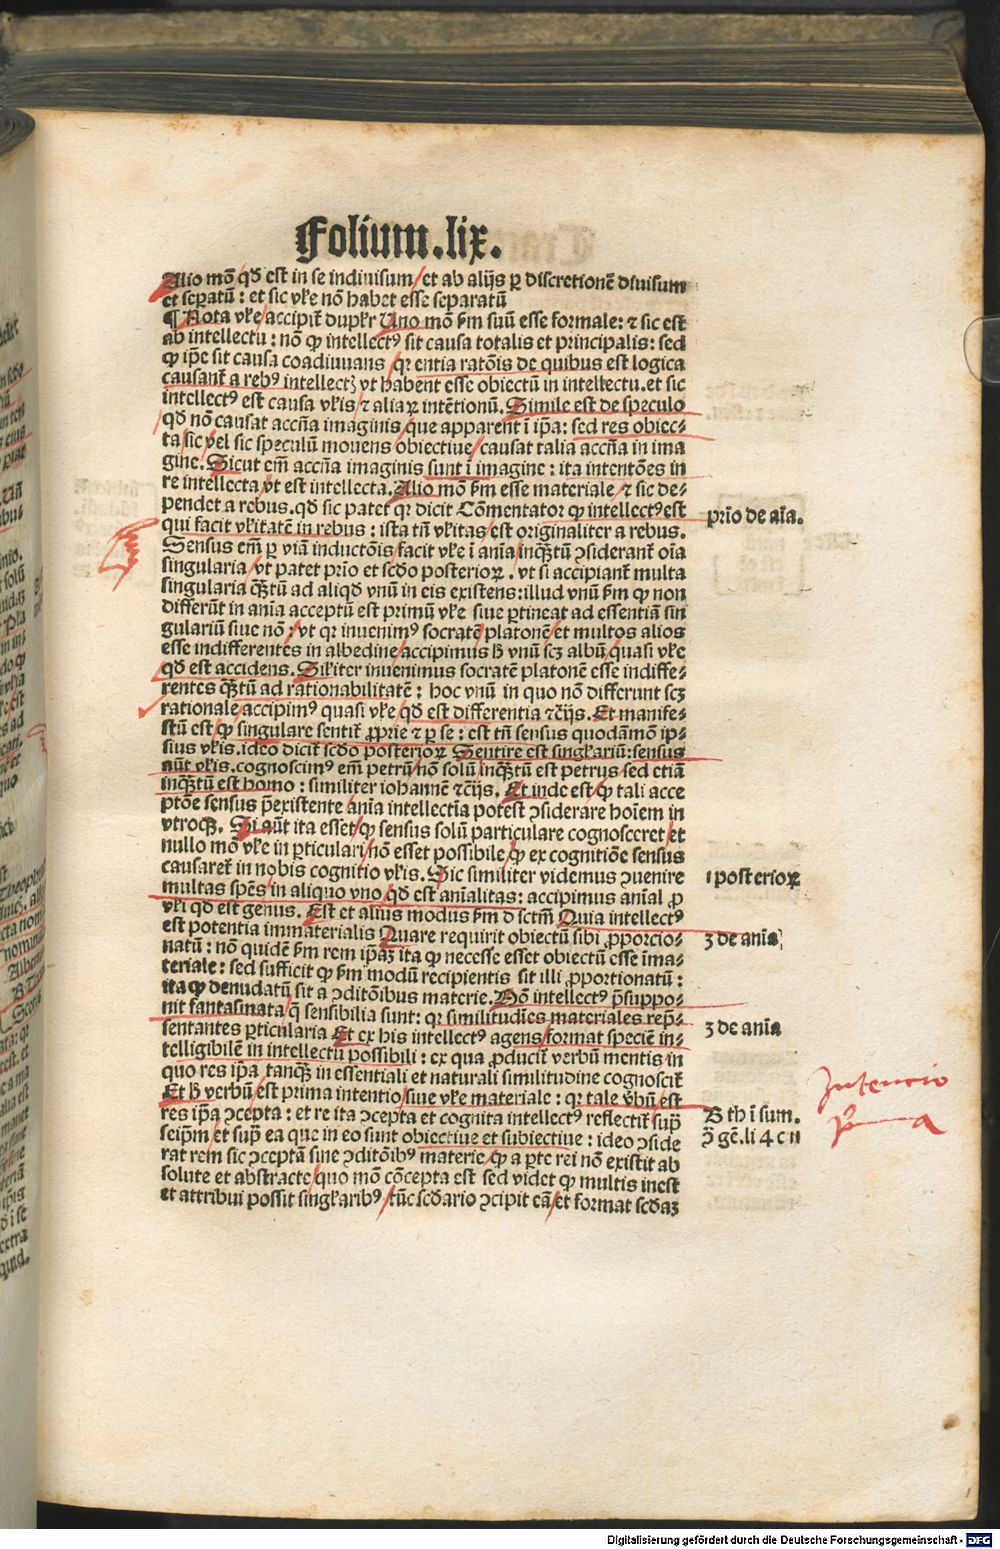 Folium.lix.
Alio mō qđ est in se indiuisum et ab alijs ꝑ discretionē diuisum
et seꝑatū : et sic vłe nō habet esse separatū
¶ Nota vłe accipit̄ dupłr Uno mō ẜm suū esse formale: ⁊ sic est
ab intellectu : nō ꝙ intellectꝰ sit causa totalis et principalis: sed
ꝙ ip̄e sit causa coadiuuans qꝛ entia ratōis de quibus est logica
causant̄ a rebꝰ intellectꝫ vt habent esse obiectū in intellectu. et sic
intellectꝰ est causa vłis ⁊ aliaꝝ intētionū. Simile est de speculo
qđ nō causat accn̄a imaginis que apparent ī ip̄a: sed res obiec-
ta sic vel sic speculū mouens obiectiue causat talia accn̄a in ima
gine. Sicut em̄ accn̄a imaginis sunt ī imagine : ita intentōes in
re intellecta vt est intellecta. Alio mō ẜm esse materiale ⁊ sic de-
pendet a rebus. qđ sic patet qꝛ dicit Cōmentator ꝙ intellectꝰ est
qui facit vłitatē in rebus : ista tn̄ vłitas est originaliter a rebus.
Sensus em̄ ꝑ viā inductōis facit vłe ī aīa inqꝫtū ꝯsiderant̄ oīa
singularia vt patet prīo et scd̄o posterioꝝ. vt si accipiant̄ multa
singularia qꝫtū ad aliqđ vnū in eis existens: illud vnū ẜm ꝙ non
differūt in anīa acceptū est primū vłe siue ꝑtineat ad essentiā sin
gulariū siue nō : vt qꝛ inuenimꝰ socratē platonē et multos alios
esse indifferentes in albedine accipimus ħ vnū scꝫ albū quasi vłe
qđ est accidens. Siłiter inuenimus socratē platonē esse indiffe-
rentes qꝫtū ad rationabilitatē : hoc vnū in quo nō differunt scꝫ
rationale accipimꝰ quasi vłe qđ est differentia ⁊c̄ijs. Et manife-
stū est ꝙ singulare sentit̄ ꝓprie ⁊ ꝑ se : est tn̄ sensus quodāmō ip-
sius vłis. ideo dicit̄ scd̄o posterioꝝ Sentire est singłariū: sensus
aūt vłis. cognoscimꝰ em̄ petrū nō solū inqꝫtū est petrus sed etiā
inqꝫtū est homo : similiter iohannē ⁊c̄ijs. Et inde est ꝙ tali acce
ptōe sensus p̄existente anīa intellectīa potest ꝯsiderare hoīem in
vtroqꝫ. Si aūt ita esset ꝙ sensus solū particulare cognosceret et
nullo mō vłe in ꝑticulari nō esset possibile ꝙ ex cognitiōe sensus
causaret̄ in nobis cognitio vłis. Sic similiter videmus ꝯuenire
multas spēs in aliquo vno qđ est anīalitas: accipimus anīal ꝓ
vłi qđ est genus. Est et alius modus ẜm d̄ sctm̄ Quia intellectꝰ
est potentia immaterialis Quare requirit obiectū sibi ꝓporcio-
natū : nō quidē ẜm rem ip̄aꝫ ita ꝙ necesse esset obiectū esse īma-
teriale : sed sufficit ꝙ ẜm modū recipientis sit illi ꝓportionatū :
ita ꝙ denudatū sit a ꝯditōibus materie. Hō intellectꝰ p̄suppo-
nit fantasmata q̄ sensibilia sunt: qꝛ similitudīes materiales rep̄-
sentantes ꝑticularia Et ex his intellectꝰ agens format speciē in-
telligibilē in intellectū possibili : ex qua ꝓducit̄ verbū mentis in
quo res ip̄a tanqꝫ in essentiali et naturali similitudine cognoscit̄
Et ħ verbū est prima intentio siue vłe materiale : qꝛ tale v̄bū est
res ip̄a ꝯcepta : et re ita ꝯcepta et cognita intellectꝰ reflectit̄ sup̄
seip̄m et sup̄ ea que in eo sunt obiectiue et subiectiue : ideo ꝯside
rat rem sic ꝯceptā sine ꝯditōibꝰ materie ꝙ a ꝑte rei nō existit ab
solute et abstracte quo mō cōcepta est sed videt ꝙ multis inest
et attribui possit singłaribꝰ tūc scd̄ario ꝯcipit eā et format scd̄aꝫ
prīo de aīa.
1 posterioꝝ
3 de anīa
3 de anīa
B th ī sum.
ꝯ̄ gē. li 4 c 11
Intencio
pͦ a
Digitalisierung gefördert durch die Deutsche Forschungsgemeinschaft - DFG